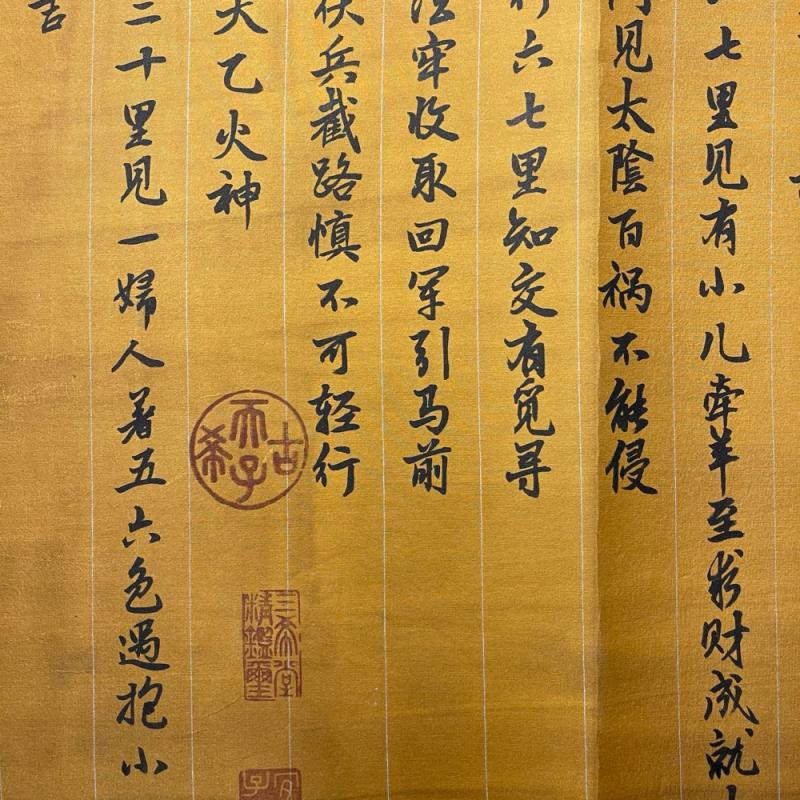 七里见有小儿牵羊至求财成就
见太陰百祸不能侵
行六七里知交有觅寻
牢收取回军引马前
伏兵截路慎不可轻行
天乙火神
二十里见一婦人著五六色遇抱小
吉
古希天子
三希堂精鑑璽
宜子